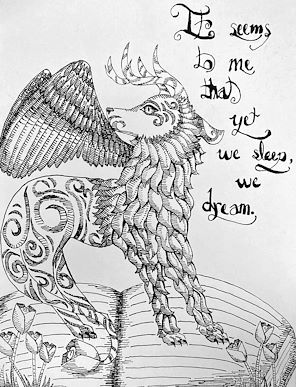 It seems
to me
that yet
we sleep,
we
dream.